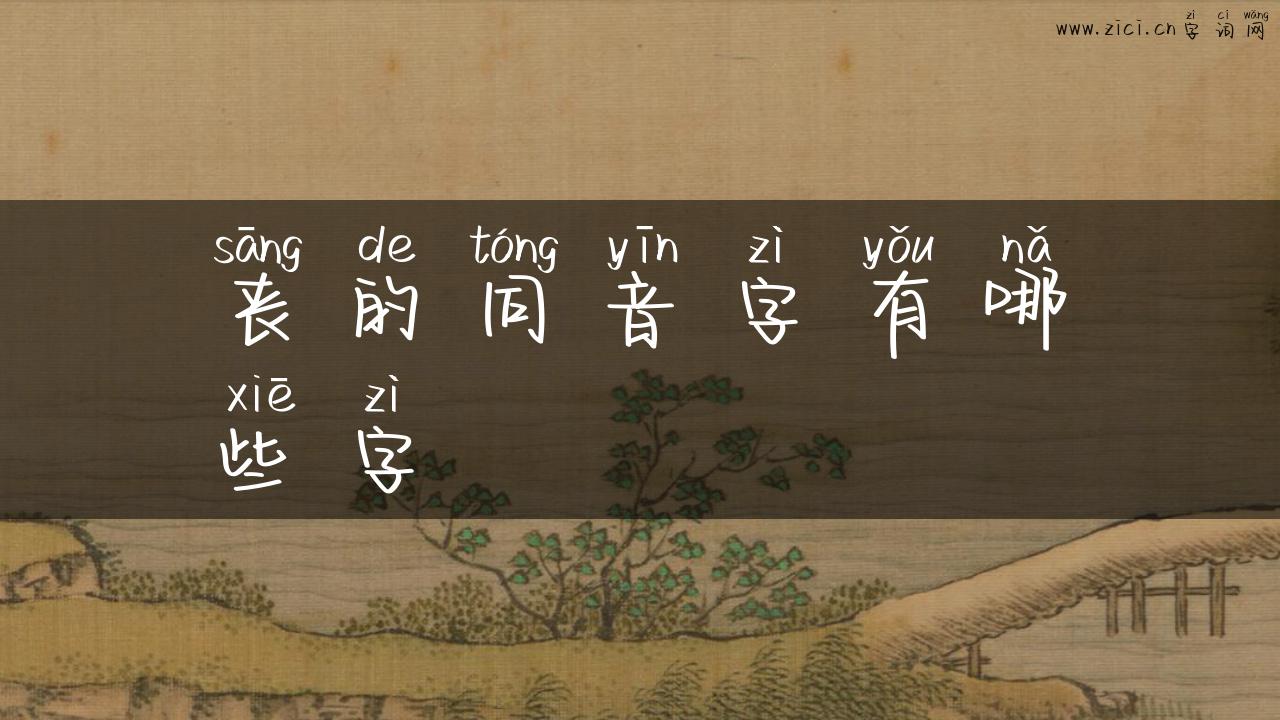 zì cí wǎng
www.zici.cn 字词网
sāng de tóng yīn zì yǒu nǎ
丧的同音字有哪
xiē zì
些字